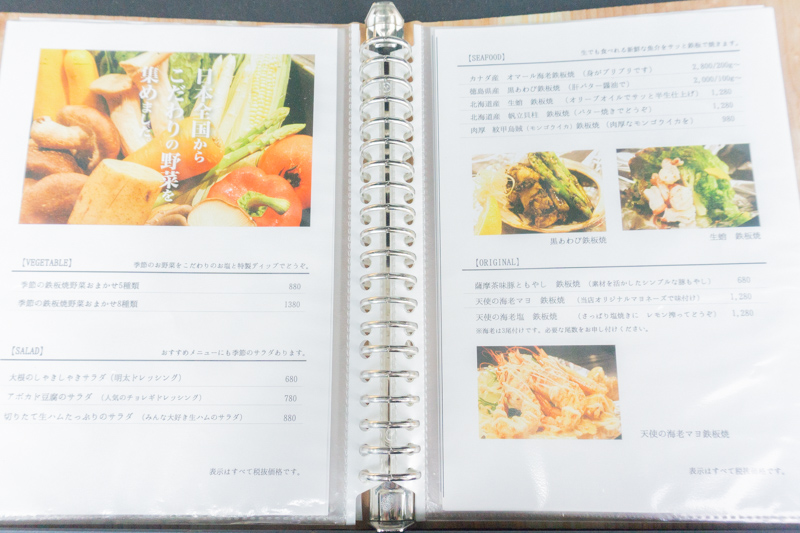 日本全国から
こだわりの野菜を
集めました
【VEGETABLE】 季節のお野菜をこだわりのお塩と特製ディップでどうぞ。
季節の鉄板焼野菜おまかせ5種類 880
季節の鉄板焼野菜おまかせ8種類 1380
【SALAD】 おすすめメニューにも季節のサラダあります。
大根のしゃきしゃきサラダ（明太ドレッシング） 680
アボカド豆腐のサラダ （人気のチョレギドレッシング） 780
切りたて生ハムたっぷりのサラダ （みんな大好き生ハムのサラダ） 880
表示はすべて税抜価格です。
【SEAFOOD】 生でも食べれる新鮮な魚介をサッと鉄板で焼きます。
カナダ産 オマール海老鉄板焼 （身がプリプリです） 2,800/200g～
徳島県産 黒あわび鉄板焼 （肝バター醤油で） 2,000/100g～
北海道産 生蛸 鉄板焼 （オリーブオイルでサッと半生仕上げ） 1,280
北海道産 帆立貝柱 鉄板焼（バター焼きでどうぞ） 1,280
肉厚 紋甲烏賊（モンゴウイカ）鉄板焼 （肉厚なモンゴウイカを） 980
黒あわび鉄板焼
生蛸 鉄板焼
【ORIGINAL】
薩摩茶味豚ともやし 鉄板焼 （素材を活かしたシンプルな豚もやし） 680
天使の海老マヨ 鉄板焼 （当店オリジナルマヨネーズで味付け） 1,280
天使の海老塩 鉄板焼 （さっぱり塩焼きに レモン搾ってどうぞ） 1,280
※海老は3尾付けです。必要な尾数をお申し付けください。
天使の海老マヨ鉄板焼
表示はすべて税抜価格です。